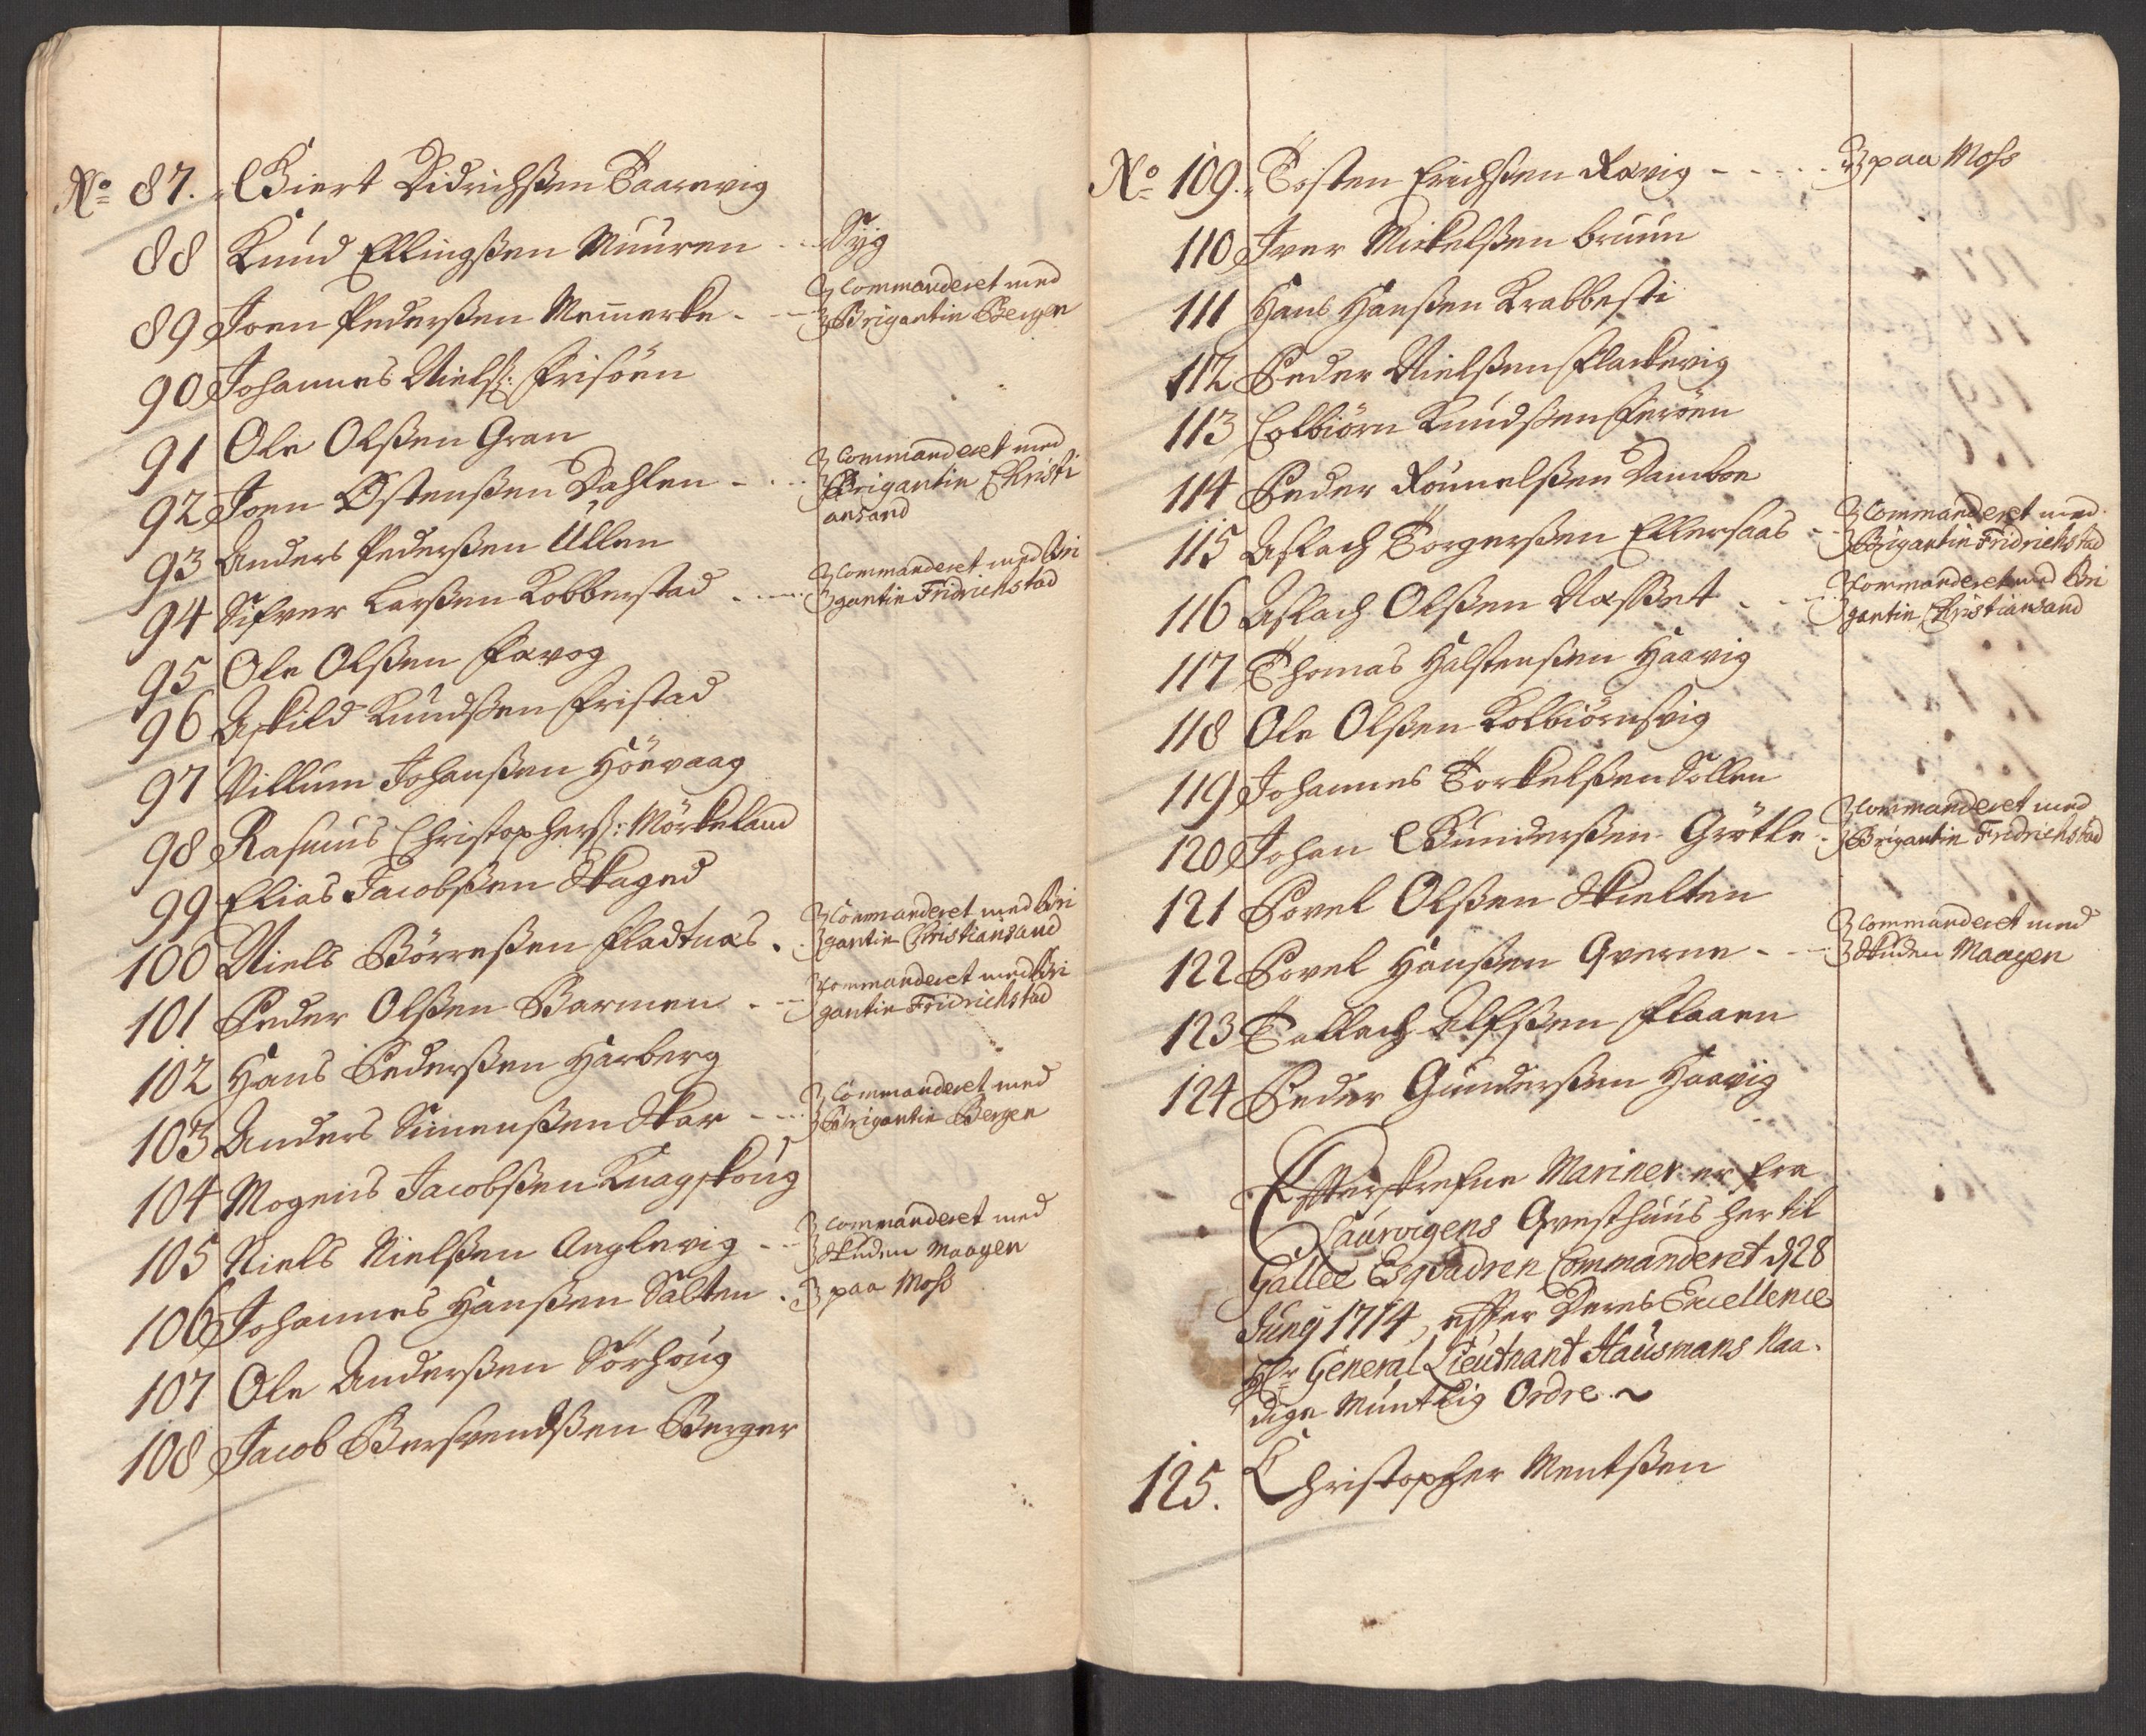 No 87. Giert Didrichßen Taarevig
88 Knud Ellingßen Muuren - - Syg
89 Joen Pederßen Nemerke - - Commanderet med
Brigantin Bergen
90 Johannes Nielsß: Frisöen
91 Ole Olßen Gran
92 Joen Østenßen Dahlen - - Commanderet med
Brigantin Christi
ansand
93 Anders Pederßen Ullen
94 Sifver Larßen Kobberstad - - Commanderet med Bri
gantin Fridrichstad
95 Ole Olßen Favog
96 Askild Knudßen Fristad
97 Villum Johanßen Höevaag
98 Rasmus Christophersß: Mörkeland
99 Elias Jacobßen Skaged
100 Niels Börreßen Fladnæs - Commanderet med Bri
gantin Christiansand
101 Peder Olßen Barmen - - Commanderet med Bri
gantin Fridrichstad
102 Hans Pederßen Harberg
103 Anders Simenßen Skar - - Commanderet med
Brigantin Bergen
104 Mogens Jacobßen Knagskoug
105 Niels Nielßen Anglevig - - Commanderet med
Skuden Maagen
106 Johannes Hanßen Salten - paa Moss
107 Ole Anderßen Sörhoug
108 Jacob Bersvendßen Berger
No 109. Tosten Erichßen Ravig - - - - paa Moss
110 Iver Mickelßen bruun
111 Hans Hanßen Krabbesti
112 Peder Nielßen Flackevig
113 Colbiörn Knudßen Feröen
114 Peder Rönnelßen Damboe
115 Aslach Torgerßen Ellersaas - Commanderet med
Brigantin Fridrichstad
116 Aslach Olßen Næsset - - Commanderet med Bri
gantin Christiansand
117 Thomas Halstenßen Haavig
118 Ole Olßen Kolbiörnsvig
119 Johannes Torkelßen Sollen
120 Johan Gunderßen Grötle - Commanderet med
Brigantin Fridrichstad
121 Povel Olßen Skielten
122 Povel Hanßen Qverne - - Commanderet med
Skuden Maagen
123 Tallach Ulfßen Flaaen
124 Peder Gunderßen Haavig
Efterskrefne Mariner er fra
Laurvigens Qvesthuus her til
Gallee Esqvadren Commanderet d 28
Junij 1714, effter Deres Excellence
Hr General Lieutnant Hausmans Naa-
dige Muntlig Ordre ~
125. Christopher Mentßen